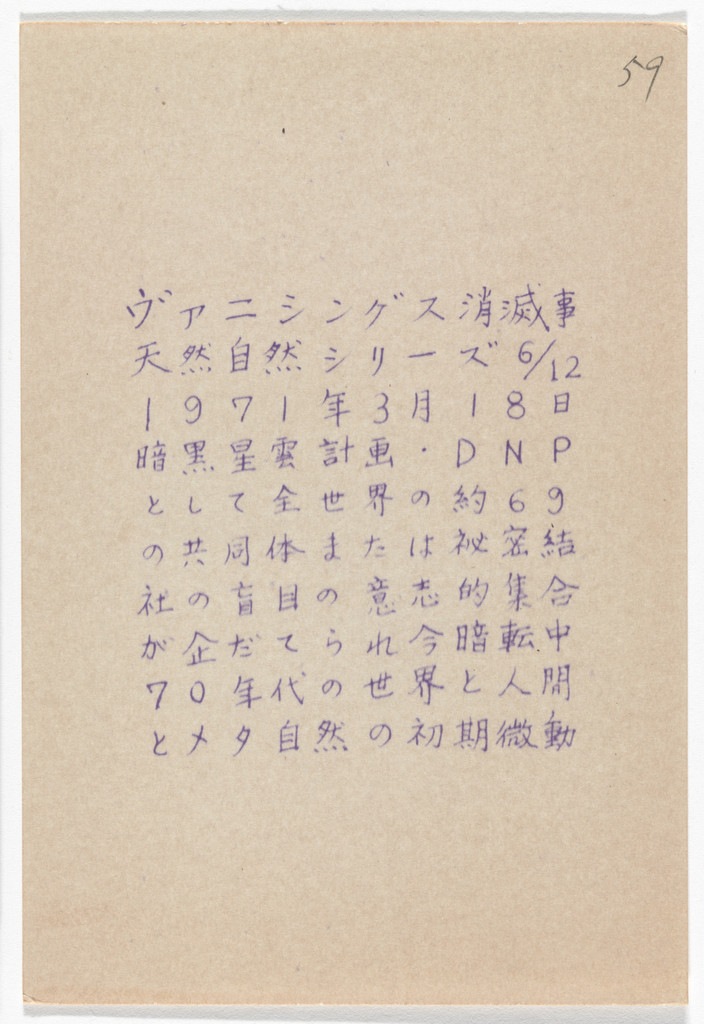 59
ヴァニシングス消滅事
天然自然シリーズ6/12
1971年3月18日
暗黒星雲計画・DNP
として全世界の約69
の共同体また は祕密結
社の盲目の意志的集合
が企だてられ今暗転中
70年代の世界と人間
とメタ自然の初期微動